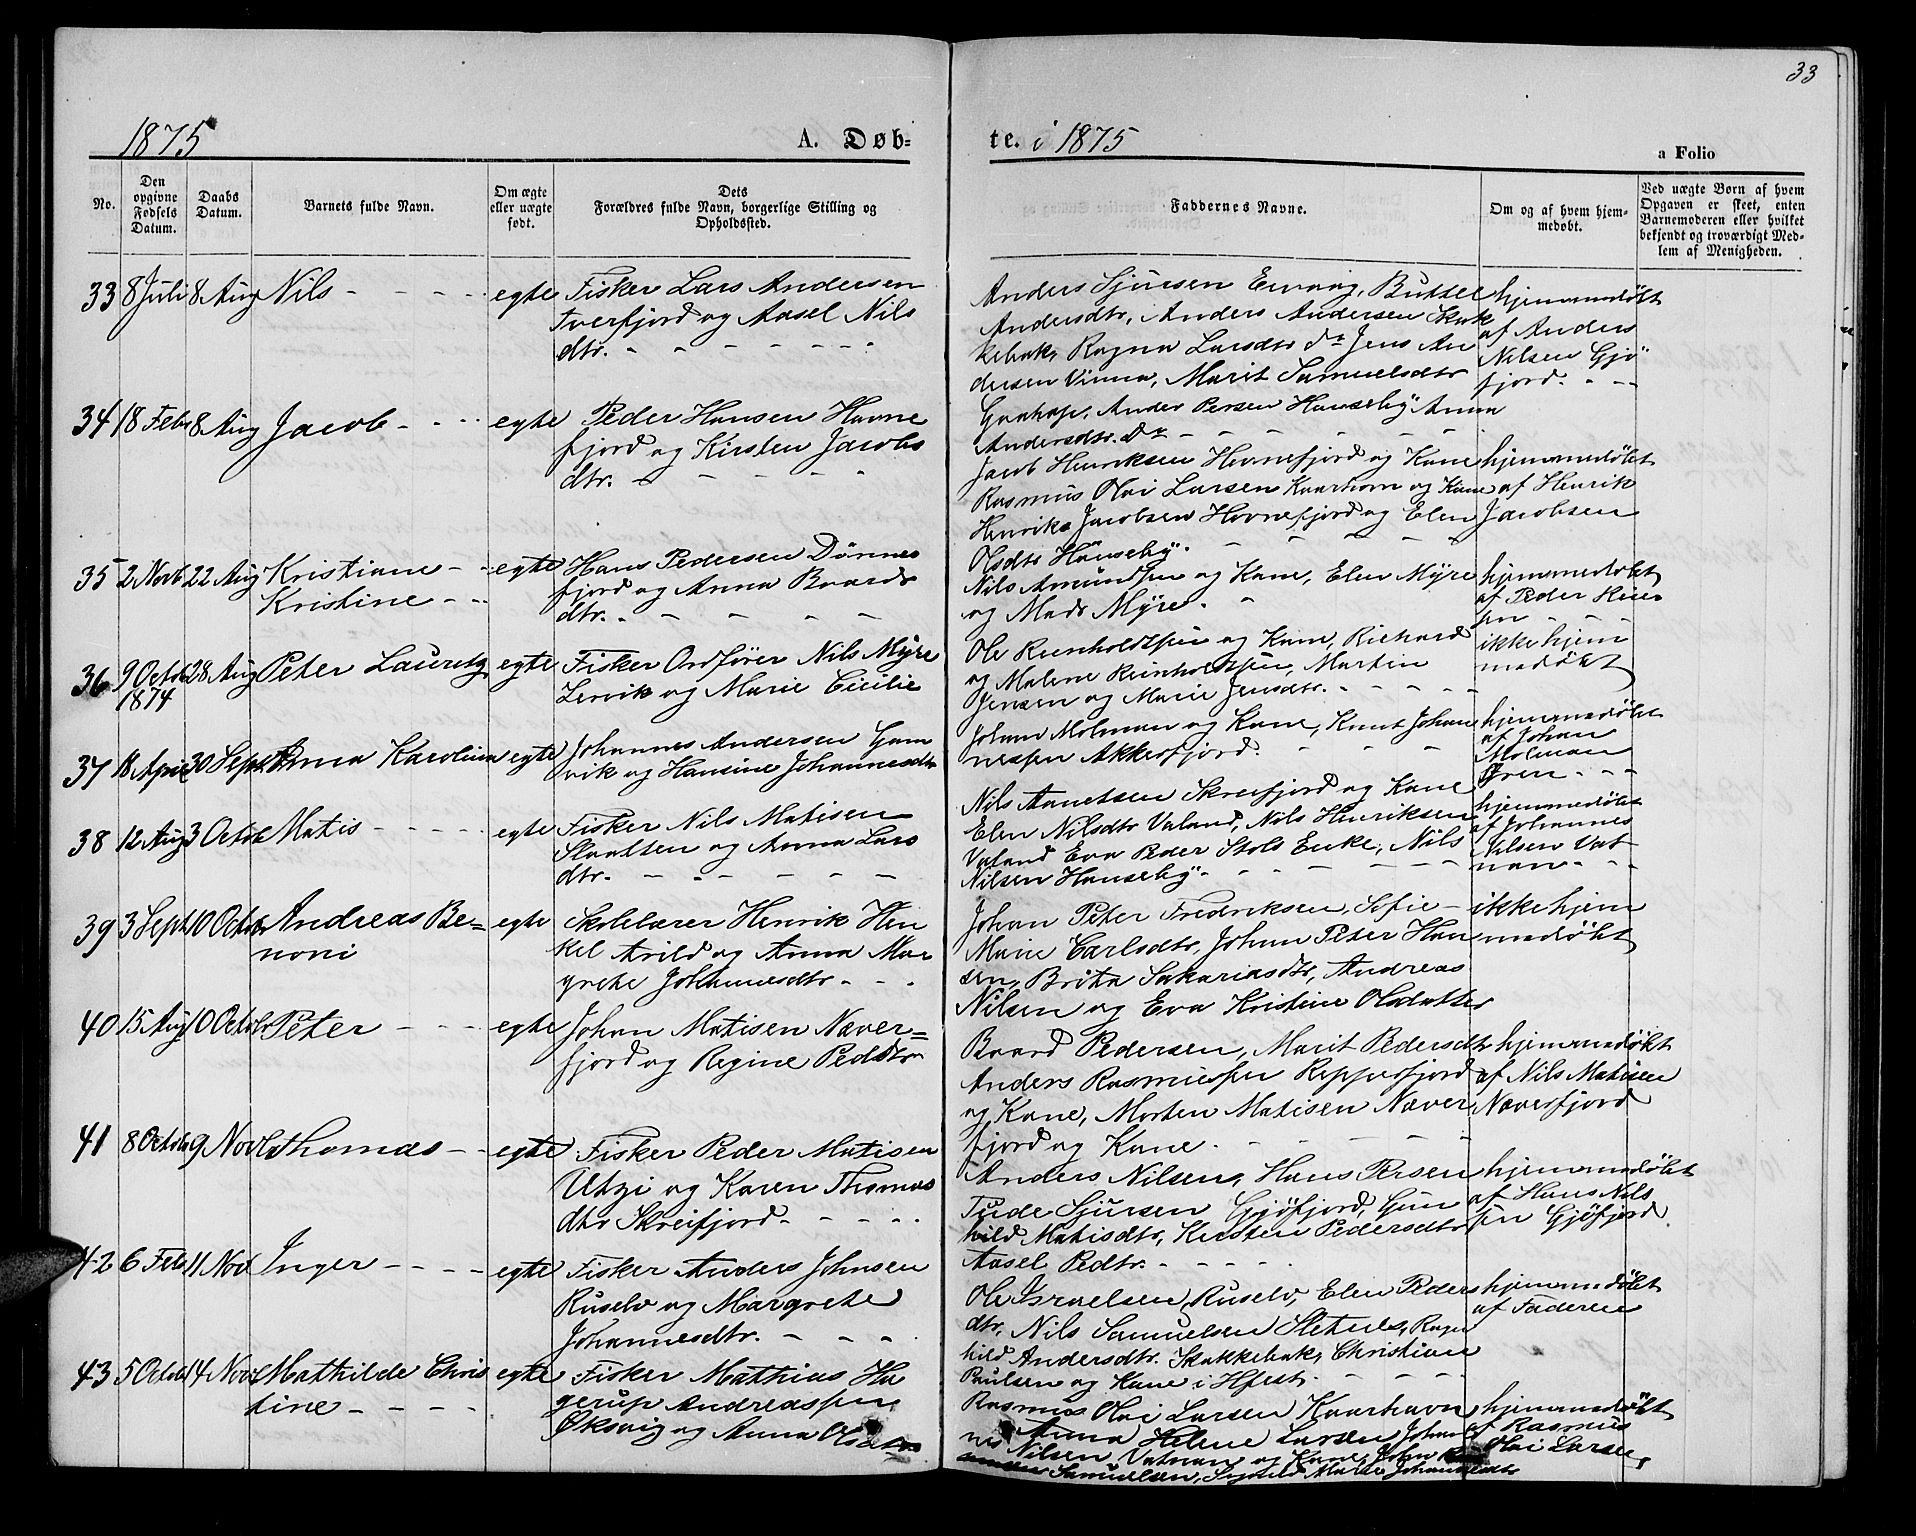 33
1875
A. Døb-
te. i 1875
a Folio
No.
Den opgivne Fødsels Datum.
Daabs Datum.
Barnets fulde Navn.
Om ægte eller uægte født.
Dets Forældres fulde Navn, borgerlige Stilling og Opholdssted.
Faddernes Navne.
Om og af hvem hjem-
medøbt.
Ved uægte Børn af hvem
Opgaven er skeet, enten
Barnemoderen eller hvilket
bekjendt og troværdigt Med-
lem af Menigheden.
33 8 Juli 8 Aug Nils - - - - egte Fisker Lars Andersen
Tverfjord og Aasel Nils
dtr. - - - - - -
Anders Sjursen Ervaag, Buttel
Andersdtr, Anders Andersen Skak
kebak, Ragna Larsdtr do Jens An
dersen Vinna, Marit Samuelsdtr
Andersdtr. Do - - - - - -
hjemmedøbt
af Anders
Nilsen Gjø
fjord. - -
34 18 Febr 8 Aug Jacob - - - egte Peder Hansen Havne
fjord og Kirsten Jacobs
dtr. - - - - -
Jacob Henriksen Hovnefjord og Kone
Rasmus Olai Larsen Kaarhavn og Kone
Henrik Jacobsen Hovnefjord og Elen
Olsdtr Hønseby. - - - - -
hjemmedøbt
af Henrik
Jacobsen
35 2 Novb 22 Aug Kristiane - - egte Hans Pedersen Dønnes
Kristine - - fjord og Anna Baards
dtr. - - - - -
Nils Amundsen og Kone, Elen Myre
og Mads Myre. -
hjemmedøbt
af Peder
sen - - -
36 9 Octob 28 Aug Peter Lauritz egte Fisker Ordfører Nils Myre
1874
Lervik og Marie Cicilie
Ole Reinholdsen og Kone, Richard
og Malene Reinholdsen, Martin
Jensen og Marie Jensdtr. - - - -
ikke hjem
medøbt
37 18 April 30 Sept Anna Karolina egte Johannes Andersen Gam
vik og Hansine Johannesdtr
Johan Molman og Kone, Knut Johan
nesen Akkerfjord. - - - -
hjemmedøbt
af Johan
Molman
Øren - - -
38 12 Aug 3 Octob Matis - - - - egte Fisker Nils Matisen
Slaatten og Anna Lars
dtr. - - - - - -
Nils Skreifjord og Kone
Elen Nilsdtr Valand, Nils Henriksen
Valand Eva Peder Stols Enke, Nils
Nilsen Hønseby - - - - - -
hjemmedøbt
af Johannes
Nilsen Vat
nan - - -
39 3 Sept 10 Octob Andreas Be= egte Skolelærer Henrik Hen
noni kel Arild og Anna Mar
grete Johannesdtr - - -
Johan Peter Fredriksen, Sofie -
Marie Carlsdtr, Johan Peter Han
sen, Brita Sakariasdtr, Andreas
Nilsen og Eva Kristine Olsdatter
ikke hjem
medøbt
40 15 Aug 10 Octob Peter - - - egte Johan Matisen Næver=
fjord og Regine Pedsdtr
Baard Pedersen, Marit Pedersdtr
Anders Rasmussen Repperfjord
og Kone, Morten Matisen Næver
fjord og Kone. - - - - - -
hjemmedøbt
af Nils Matisen
Næverfjord
41 8 Octob 9 Novb Thomas - - egte Fisker Peder Matisen
Utzi og Karen Thomas
dtr Skreifjord - - - - -
Anders Nilsen, Hans Persen
Tude Sjursen Gjøfjord, Gun
hild Matisdtr, Kirsten Pedersdtr
Aasel Pedtr. - - - - -
hjemmedøbt
af Hans Nils
sen Gjøfjord.
42 6 Feb 11 Nov Inger - - - - egte Fisker Anders Johnsen
Ruselv og Margrete
Johannesdtr. - - - -
Ole Israelsen Ruselv, Elen Peders
dtr, Nils Samuelsen Sletnes, Ragn
hild Andersdtr. Skakkebak, Christian
Paulsen og Kone i Hfest. - - - -
hjemmedøbt
af Faderen
43 5 Octob 14 Nov Mathilde Chris egte Fisker Mathias Ha
tine - - - - gerup Andreassen
Øksvig og Anna Olsdtr
Rasmus Olai Larsen Kaarhavn
Anna Helene Larsen Johan
nes Nilsen, Vatnan og Kone, John
Samuelsen, Johannesdtr
hjemmedøbt
af Rasmus
Olai Larsen